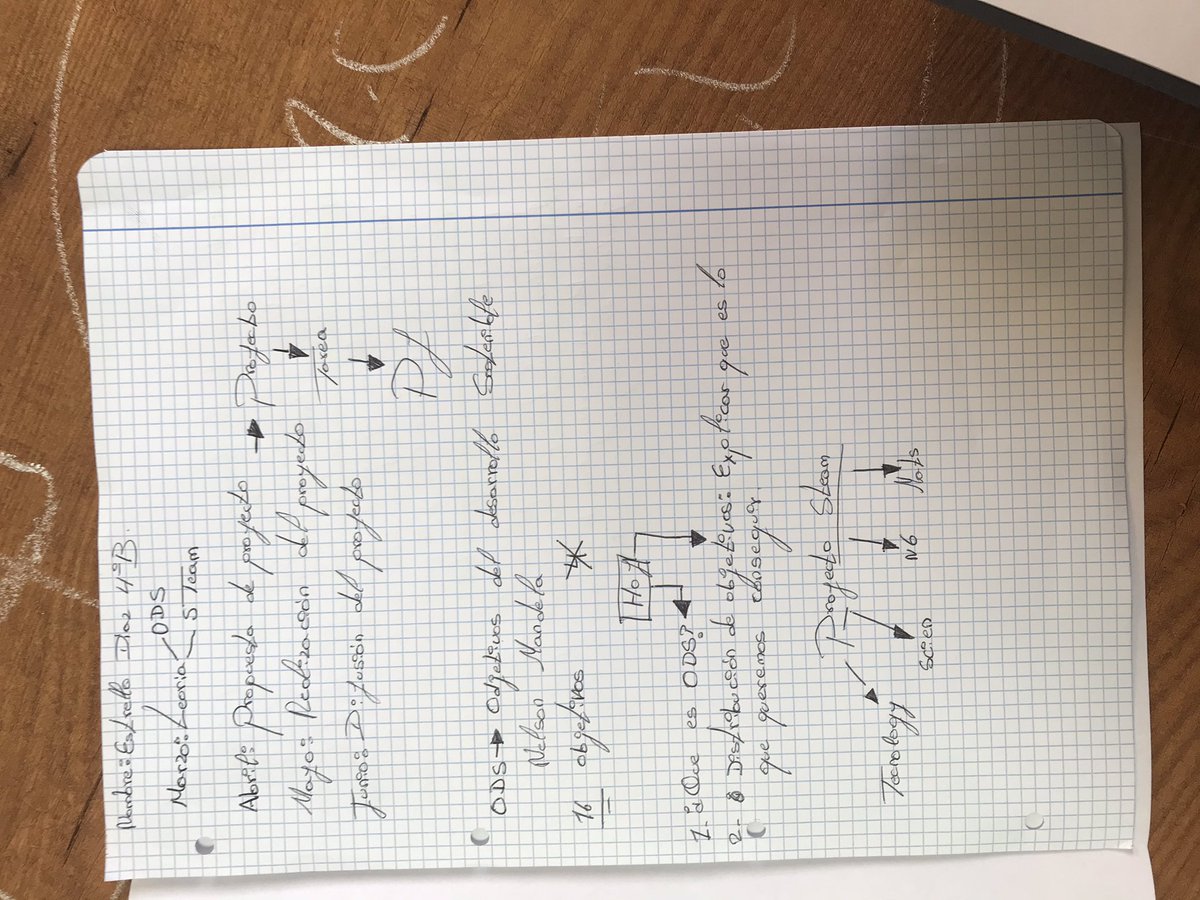 Nombre: Estrella Díaz 4ºB.
Marzo: Teoria ODS
STeam
Abril: Propuesta de proyecto → Proyecto
Mayo: Realización del proyecto Tarea
Junio: Difusión del proyecto Pf
ODS → Odjetivos del desarrollo Sostenible
Nelson Mandela
16 objetivos
Hoy
1- ¿Que es ODS?
2- Distribución de objetivos: Explicar que es lo
que queremos conseguir.
Proyecto Steam
Tecnology Scien Nats